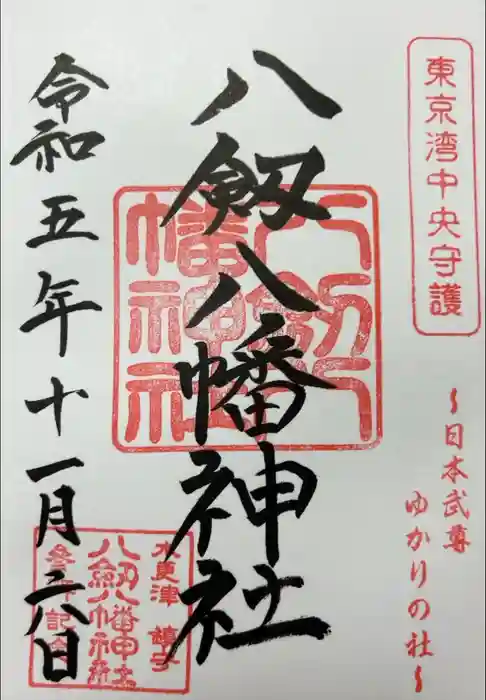 東京湾中央守護
~日本武尊
ゆかりの社~
八劔八幡神社
八劔八幡神社
令和五年十一月二八日
木更津 鎮守
八劔八幡神社
参拝記念